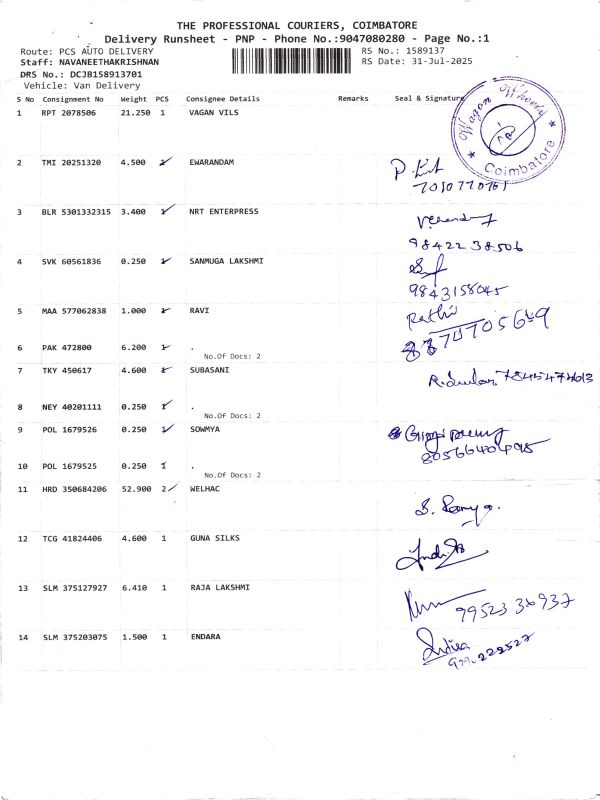 THE PROFESSIONAL COURIERS, COIMBATORE
Delivery Runsheet - PNP - Phone No.:9047080280 - Page No.:1
Route: PCS AUTO DELIVERY
RS No.: 1589137
Staff: NAVANEETHAKRISHNAN
RS Date: 31-Jul-2025
DRS No.: DCJB158913701
Vehicle: Van Delivery
S No Consignment No Weight PCS Consignee Details Remarks Seal & Signature
Wagon Wheels
Coimbatore
1 RPT 2078506 21.250 1 VAGAN VILS
2 TMI 20251320 4.500 EWARANDAM
7010770761
3 BLR 5301332315 3.400 1 NRT ENTERPRESS
98422 38506
4 SVK 60561836 0.250 1 SANMUGA LAKSHMI
9843158045
5 MAA 577062838 1.000 RAVI
Rathi
6 PAK 472800 6.200 1 .
No.Of Docs: 2
7 TKY 450617 4.600 SUBASANI
8 NEY 40201111 0.250 1 .
No.Of Docs: 2
9 POL 1679526 0.250 1 SOWMYA
10 POL 1679525 0.250 1 .
No.Of Docs: 2
11 HRD 350684206 52.900 2 WELHAC
12 TCG 41824406 4.600 1 GUNA SILKS
13 SLM 375127927 6.410 1 RAJA LAKSHMI
14 SLM 375203075 1.500 1 ENDARA